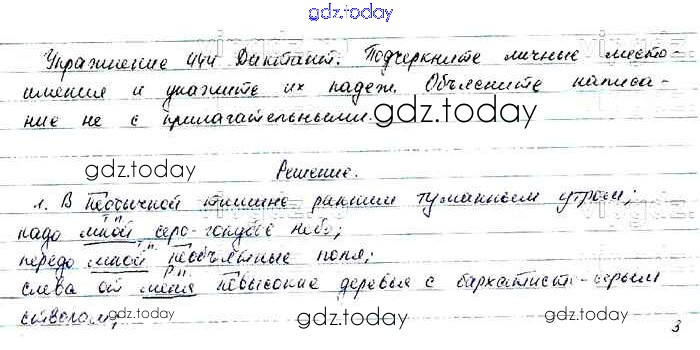 gdz.today
Упражнение 444 Диктант. Подчеркните личные место-
имения и укажите их падеж. Объясните написа-
ние не с прилагательными.
gdz.today
gdz.today
Решение.
1. В необычной тишине ранним туманным утром;
надо мной серо-голубое небо;
передо мной необъятные поля;
слева от меня невысокие деревья с бархатисто-серым
стволом;
gdz.today
gdz.today
gdz.today
3